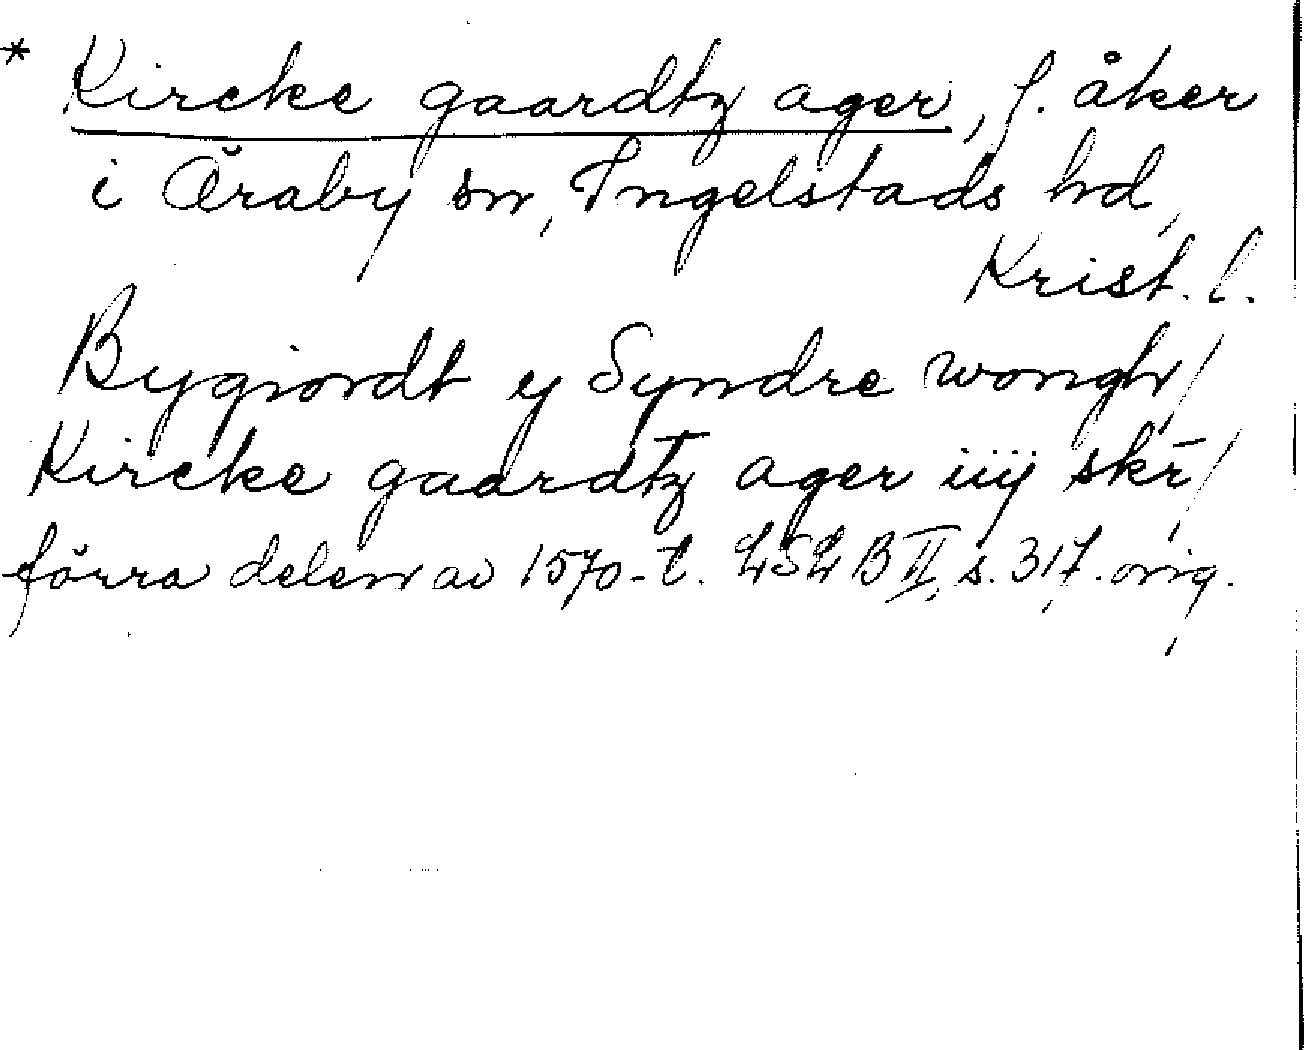 * Kircke gaardtz ager, f. åker
i Öraby sn, Ingelstads hd,
Krist. l.
Bygiordt y Syndre wongh/
Kircke gaardtz ager iiij skr̄/
förra delen av 1570-t. LSLB II, s. 317. orig.